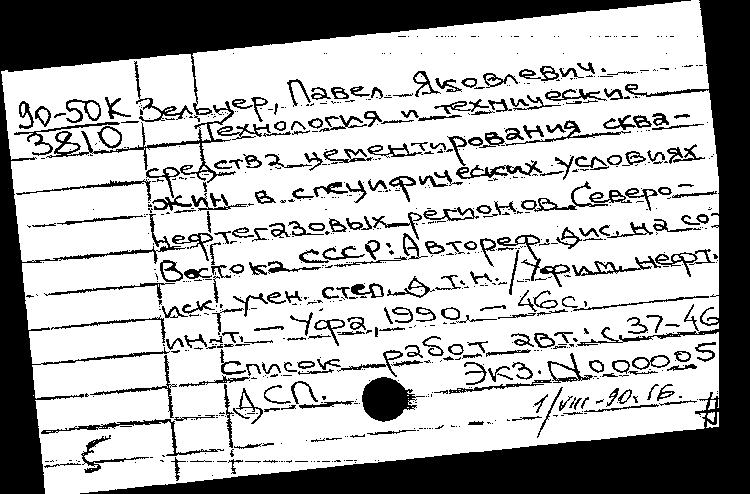 90-50К Зельцер, Павел Яковлевич.
3810 Технология и технические
средства цементирования сква-
жин в специфических условиях
нефтегазовых регионов Северо-
Востока СССР: Автореф. дис. на со-
иск. учен. степ. д. т. н. / Уфим. нефт.
ин-т. — Уфа, 1990. — 46 с.
Список работ авт.: с. 37-46
Экз. N000005
ДСП.
1/VIII-90. ГБ.